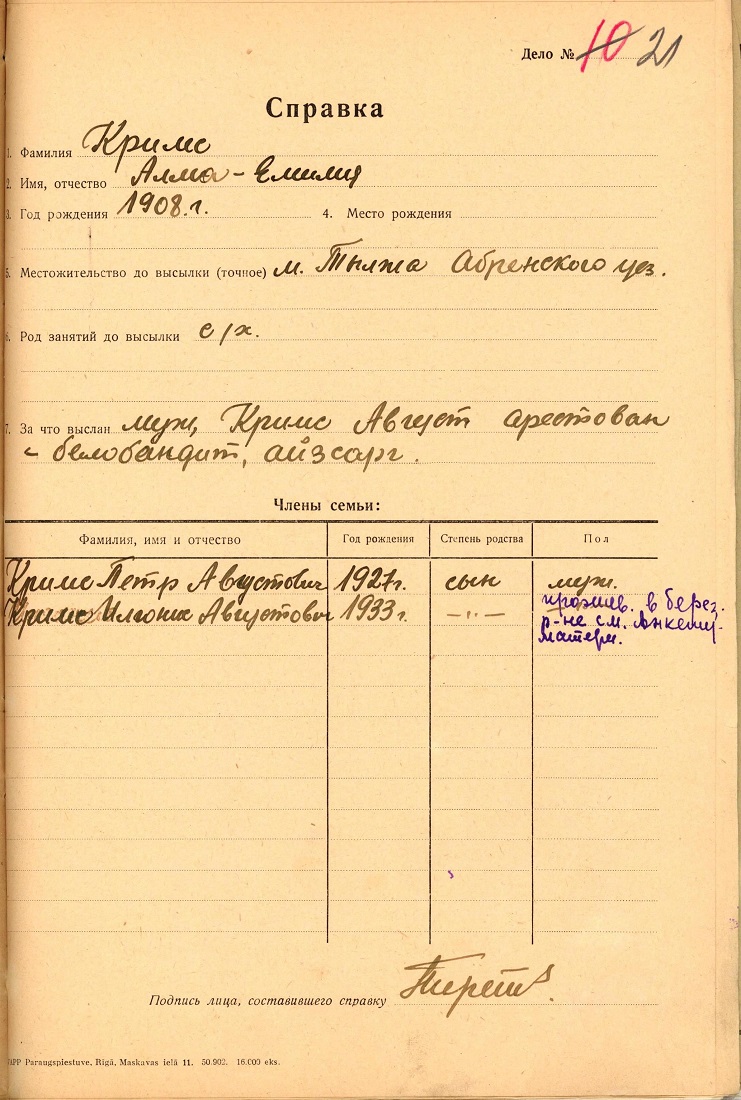 Дело № 10 21
Справка
1. Фамилия Кримс
2. Имя, отчество Алма-Емилия
3. Год рождения 1908.г. 4. Место рождения
5. Местожительство до высылки (точное) м. Тылжа Абренского уез.
6. Род занятий до высылки с/х.
7. За что выслан муж, Кримс Август арестован
- белобандит, айзсарг.
Члены семьи:
Фамилия, имя и отчество Год рождения Степень родства Пол
Кримс Петр Августович 1927г. сын муж.
Кримс Августович 1933г. -"-
прожив. в берез.
р-не см. Анкету
матери.
Подпись лица, составившего справку
VAPP Paraugspiestuve, Rīgā, Maskavas ielā 11. 50.902. 16.000 eks.